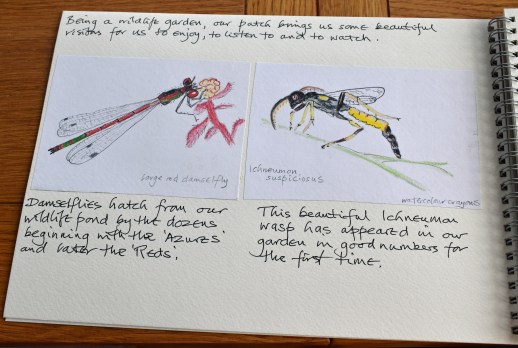 Being a wildlife garden, our patch brings us some beautiful
visions for us to enjoy, to listen to and to watch.
Large red damselfly
Ichneumon
suspiciosus
watercolour crayons
Damselflies hatch from our
wildlife pond by the dozens
beginning with the 'Azures'
and later the 'Reds'.
This beautiful Ichneumon
wasp has appeared in our
garden in good numbers for
the first time.